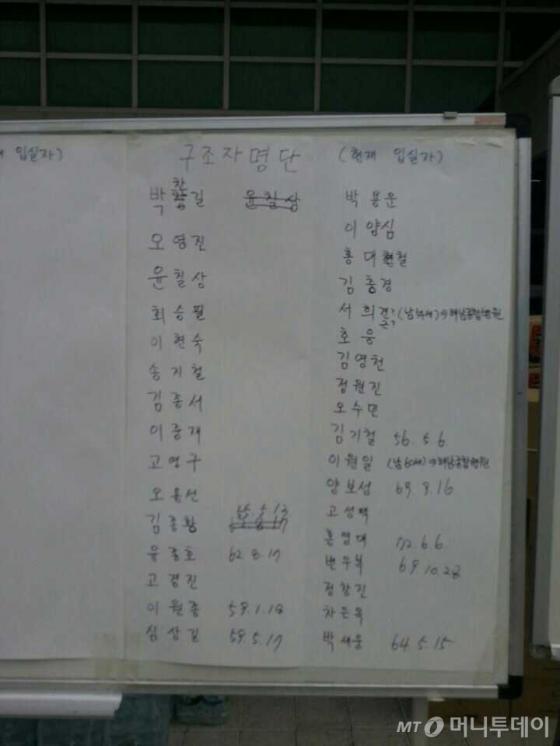 입실자)
구조자명단
(현재 입실자)
박 창 길
윤칠상
오 영 진
윤 칠 상
최 승 필
이 현 숙
송 지 철
김 종 서
이 중 재
고 영 구
오 윤 선
김 종 황
윤 종 호 62.8.17
고 경 진
이 원 종 59.1.18
심 상 길 59.5.17
박 용 운
이 양 심
홍 대 철
김 총 경
서 희
호 웅
김 영 천
정 원 진
오 수 민
김 기 철 56.5.6
이 원 일
양 보 섭 69.9.16
고 성 택
홍 영 대 72.6.6
변 우 복 69.10.28
정 창 진
차 은 옥
박 세 웅 64.5.15
MT 머니투데이